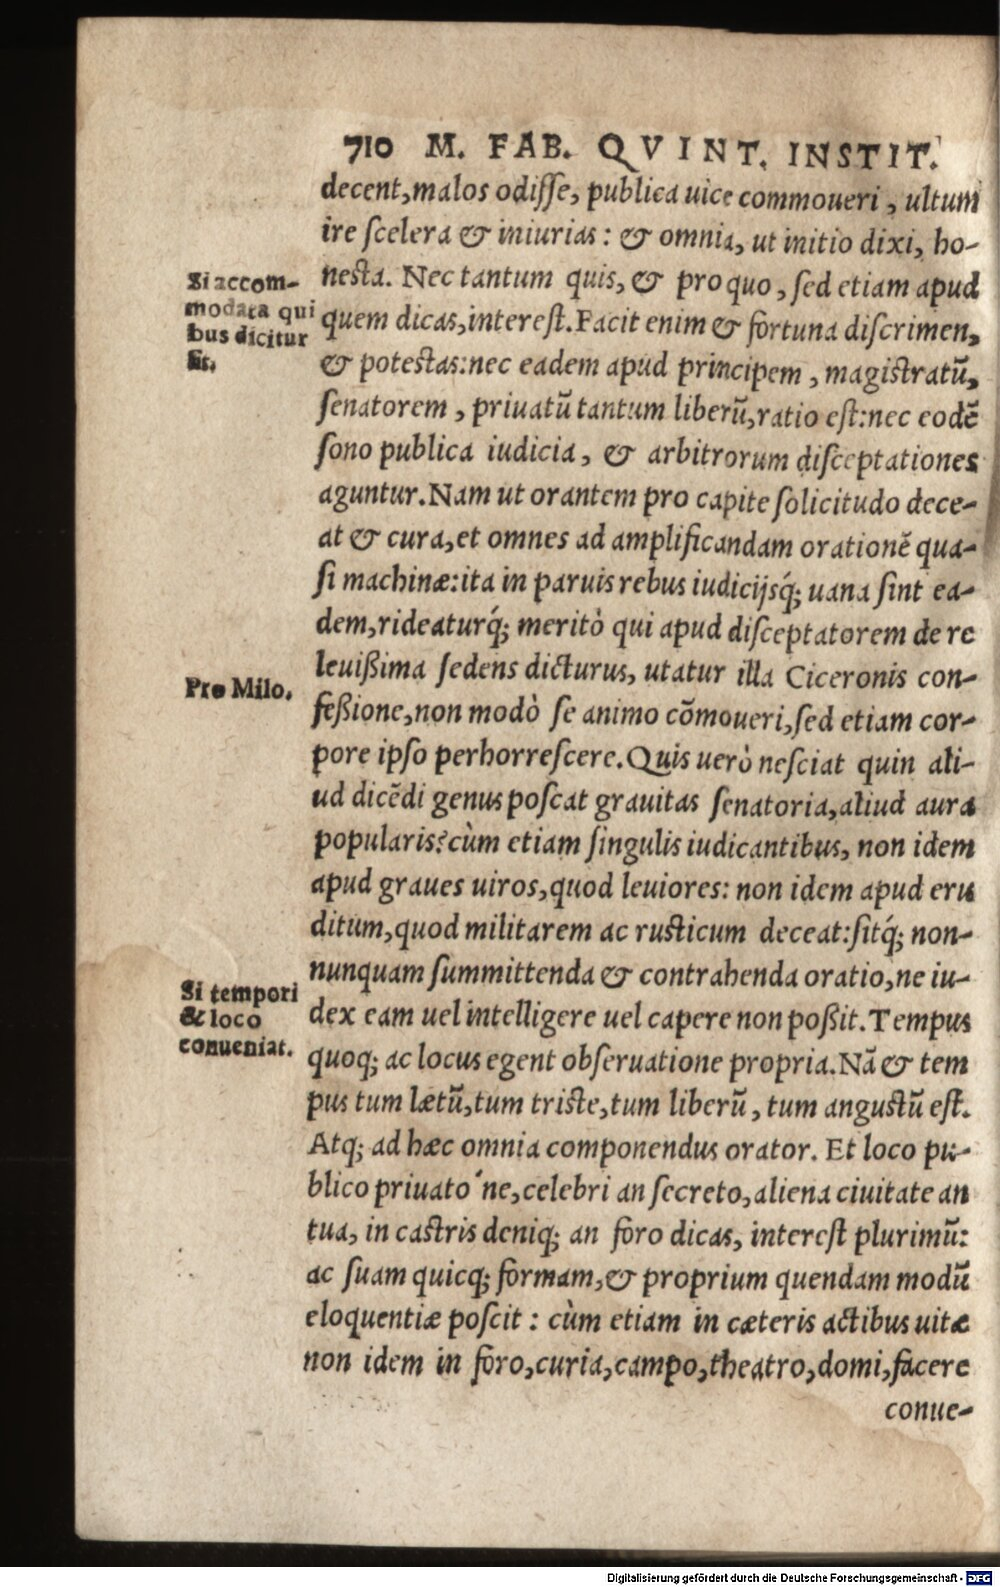 710 M. FAB. QVINT. INSTIT.
decent,malos odisse, publica uice commoueri, ultum
ire scelera & iniurias: & omnia, ut initio dixi, ho-
nesta. Nec tantum quis, & pro quo, sed etiam apud
quem dicas,interest.Facit enim & fortuna discrimen,
& potestas:nec eadem apud principem, magistratū,
senatorem, priuatū tantum liberū,ratio est:nec eodē
sono publica iudicia, & arbitrorum disceptationes
aguntur.Nam ut orantem pro capite solicitudo dece-
at & cura,et omnes ad amplificandam orationē qua-
si machinæ:ita in paruis rebus iudicijsq́; uana sint ea-
dem,rideaturq́; meritò qui apud disceptatorem de re
leuißima sedens dicturus, utatur illa Ciceronis con-
feßione,non modò se animo cōmoueri,sed etiam cor-
pore ipso perhorrescere.Quis uerò nesciat quin ali-
ud dicēdi genus poscat grauitas senatoria,aliud aura
popularis?cùm etiam singulis iudicantibus, non idem
apud graues uiros,quod leuiores: non idem apud eru
ditum,quod militarem ac rusticum deceat:sitq́; non-
nunquam summittenda & contrahenda oratio,ne iu-
dex eam uel intelligere uel capere non poßit.Tempus
quoq; ac locus egent obseruatione propria.Nā & tem
pus tum lætū,tum triste,tum liberū, tum angustū est.
Atq; ad hæc omnia componendus orator. Et loco pu-
blico priuato ́ne,celebri an secreto,aliena ciuitate an
tua, in castris deniq; an foro dicas, interest plurimū:
ac suam quicq; formam,& proprium quendam modū
eloquentiæ poscit: cùm etiam in cæteris actibus uitæ
non idem in foro,curia,campo,theatro,domi,facere
conue-
Si accom-
modata qui
bus dicitur
sit.
Pro Milo.
Si tempori
& loco
conueniat.
Digitalisierung gefördert durch die Deutsche Forschungsgemeinschaft - DFG